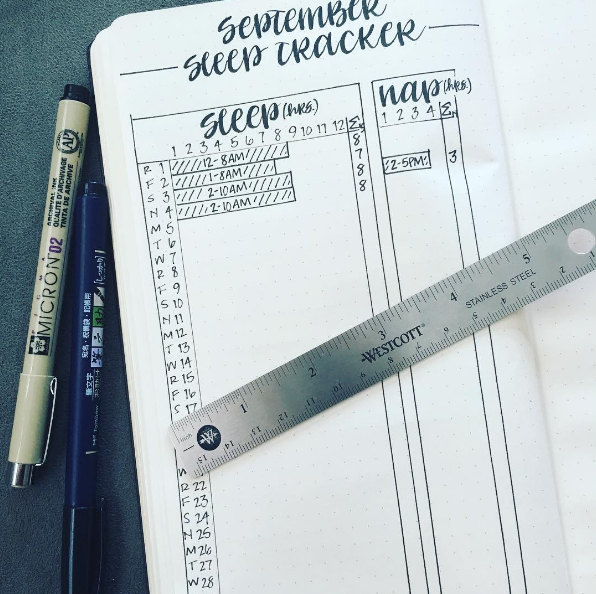 SEPTEMBER
SLEEP TRACKER
sleep (hrs.)
1 2 3 4 5 6 7 8 9 10 11 12 Σ
nap (hrs.)
1 2 3 4 Σ
R 1 12-8AM 8
F 2 1-8AM 7 12-5PM 3
S 3 2-10AM 8
N 4 2-10AM 8
M 5
T 6
W 7
R 8
F 9
S 10
N 11
M 12
T 13
W 14
R 15
F 16
S 17
R 22
F 23
S 24
N 25
M 26
T 27
W 28
1 2 3 4 5
WESTCOTT
STAINLESS STEEL
ARCHIVAL INK
QUALITÉ D'ARCHIVAGE
TINTA DE ARCHIVE
AP
MICRON 02
筆文字